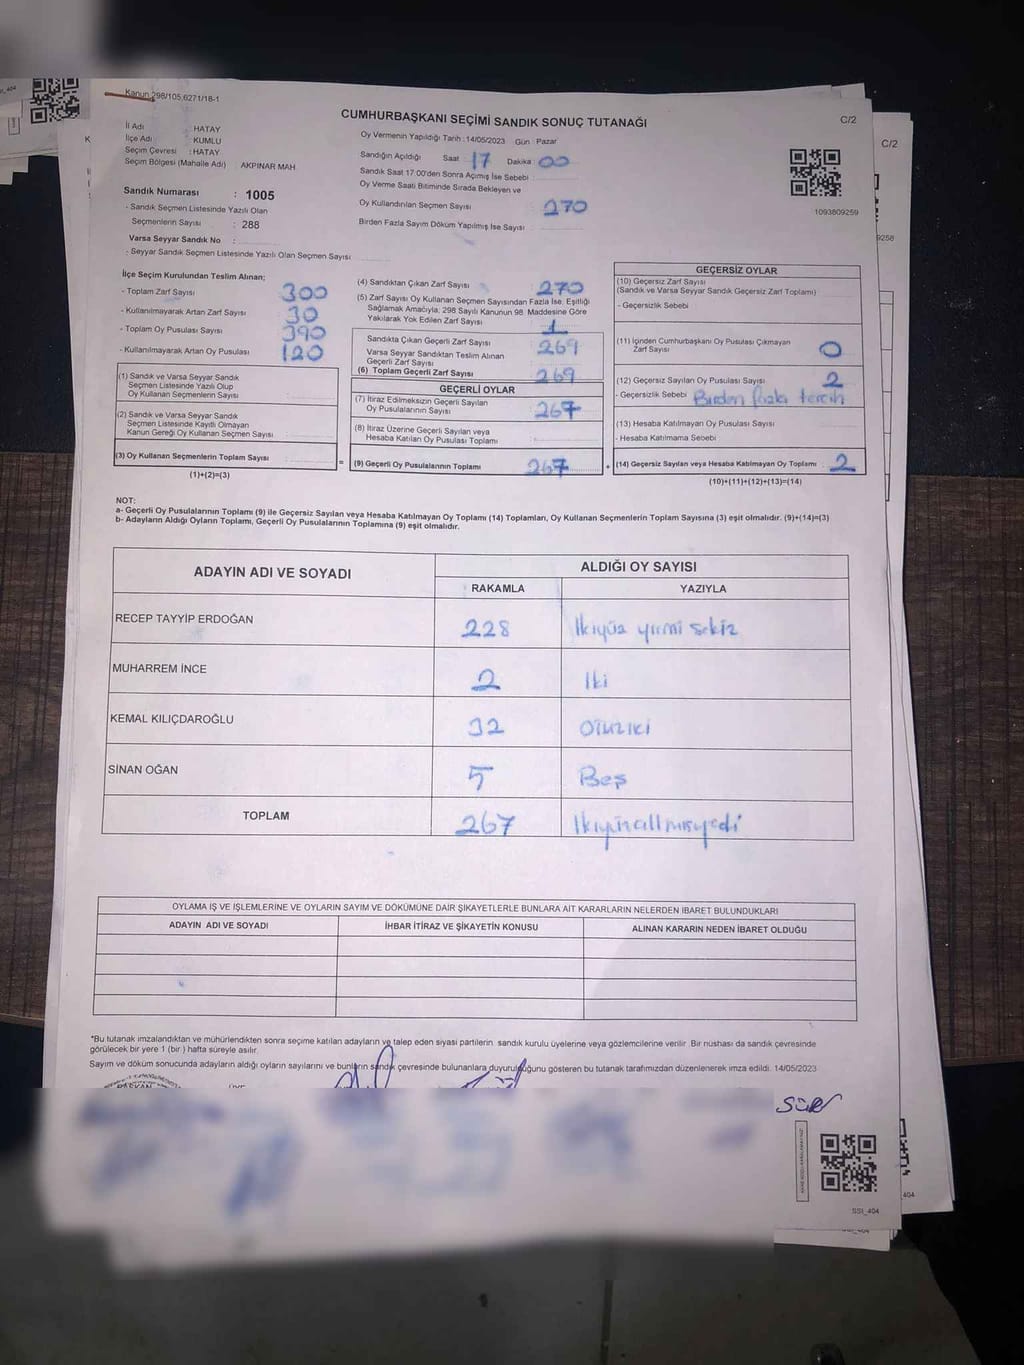 Kanun 298/105,6271/18-1
CUMHURBAŞKANI SEÇİMİ SANDIK SONUÇ TUTANAĞI
C/2
C/2
İl Adı : HATAY
İlçe Adı : KUMLU
Seçim Çevresi : HATAY
Seçim Bölgesi (Mahalle Adı) AKPINAR MAH
Sandık Numarası : 1005
- Sandık Seçmen Listesinde Yazılı Olan
Seçmenlerin Sayısı : 288
Varsa Seyyar Sandık No :
- Seyyar Sandık Seçmen Listesinde Yazılı Olan Seçmen Sayısı
Oy Vermenin Yapıldığı Tarih : 14/05/2023 Gün : Pazar
Sandığın Açıldığı Saat 17 Dakika 00
Sandık Saat 17:00'den Sonra Açımış İse Sebebi :
Oy Verme Saati Bitiminde Sırada Bekleyen ve
Oy Kullandırılan Seçmen Sayısı 270
Birden Fazla Sayım Döküm Yapılmış İse Sayısı
1093809259
9258
İlçe Seçim Kurulundan Teslim Alınan;
- Toplam Zarf Sayısı 300
- Kullanılmayarak Artan Zarf Sayısı 30
- Toplam Oy Pusulası Sayısı 390
- Kullanılmayarak Artan Oy Pusulası 120
(1) Sandık ve Varsa Seyyar Sandık
Seçmen Listesinde Yazılı Olup
Oy Kullanan Seçmenlerin Sayısı
(2) Sandık ve Varsa Seyyar Sandık
Seçmen Listesinde Kayıtlı Olmayan
Kanun Gereği Oy Kullanan Seçmen Sayısı
(3) Oy Kullanan Seçmenlerin Toplam Sayısı
(1)+(2)=(3)
=
(4) Sandıktan Çıkan Zarf Sayısı : 270
(5) Zarf Sayısı Oy Kullanan Seçmen Sayısından Fazla İse, Eşitliği
Sağlamak Amacıyla; 298 Sayılı Kanunun 98. Maddesine Göre
Yakılarak Yok Edilen Zarf Sayısı 1
Sandıkta Çıkan Geçerli Zarf Sayısı 269
Varsa Seyyar Sandıktan Teslim Alınan
Geçerli Zarf Sayısı
(6) Toplam Geçerli Zarf Sayısı 269
GEÇERLİ OYLAR
(7) İtiraz Edilmeksizin Geçerli Sayılan
Oy Pusulalarının Sayısı : 267
(8) İtiraz Üzerine Geçerli Sayılan veya
Hesaba Katılan Oy Pusulası Toplamı
(9) Geçerli Oy Pusulalarının Toplamı 267
+
GEÇERSİZ OYLAR
(10) Geçersiz Zarf Sayısı
(Sandık ve Varsa Seyyar Sandık Geçersiz Zarf Toplamı)
- Geçersizlik Sebebi
(11) İçinden Cumhurbaşkanı Oy Pusulası Çıkmayan
Zarf Sayısı 0
(12) Geçersiz Sayılan Oy Pusulası Sayısı 2
- Geçersizlik Sebebi Birden fazla tercih
(13) Hesaba Katılmayan Oy Pusulası Sayısı
- Hesaba Katılmama Sebebi
(14) Geçersiz Sayılan veya Hesaba Katılmayan Oy Toplamı : 2
(10)+(11)+(12)+(13)=(14)
NOT:
a- Geçerli Oy Pusulalarının Toplamı (9) ile Geçersiz Sayılan veya Hesaba Katılmayan Oy Toplamı (14) Toplamları, Oy Kullanan Seçmenlerin Toplam Sayısına (3) eşit olmalıdır. (9)+(14)=(3)
b- Adayların Aldığı Oyların Toplamı, Geçerli Oy Pusulalarının Toplamına (9) eşit olmalıdır.
ADAYIN ADI VE SOYADI ALDIĞI OY SAYISI
RAKAMLA YAZIYLA
RECEP TAYYİP ERDOĞAN 228 İkiyüz yirmi sekiz
MUHARREM İNCE 2 İki
KEMAL KILIÇDAROĞLU 32 otuziki
SİNAN OĞAN 5 Beş
TOPLAM 267 İkiyüzaltmışyedi
OYLAMA İŞ VE İŞLEMLERİNE VE OYLARIN SAYIM VE DÖKÜMÜNE DAİR ŞİKAYETLERLE BUNLARA AİT KARARLARIN NELERDEN İBARET BULUNDUKLARI
ADAYIN ADI VE SOYADI İHBAR İTİRAZ VE ŞİKAYETİN KONUSU ALINAN KARARIN NEDEN İBARET OLDUĞU
*Bu tutanak imzalandıktan ve mühürlendikten sonra seçime katılan adayların ve talep eden siyasi partilerin sandık kurulu üyelerine veya gözlemcilerine verilir. Bir nüshası da sandık çevresinde
görülecek bir yere 1 (bir) hafta süreyle asılır.
Sayım ve döküm sonucunda adayların aldığı oyların sayılarını ve bunların sandık çevresinde bulunanlara duyurulduğunu gösteren bu tutanak tarafımızdan düzenlenerek imza edildi. 14/05/2023
SSI_404
404